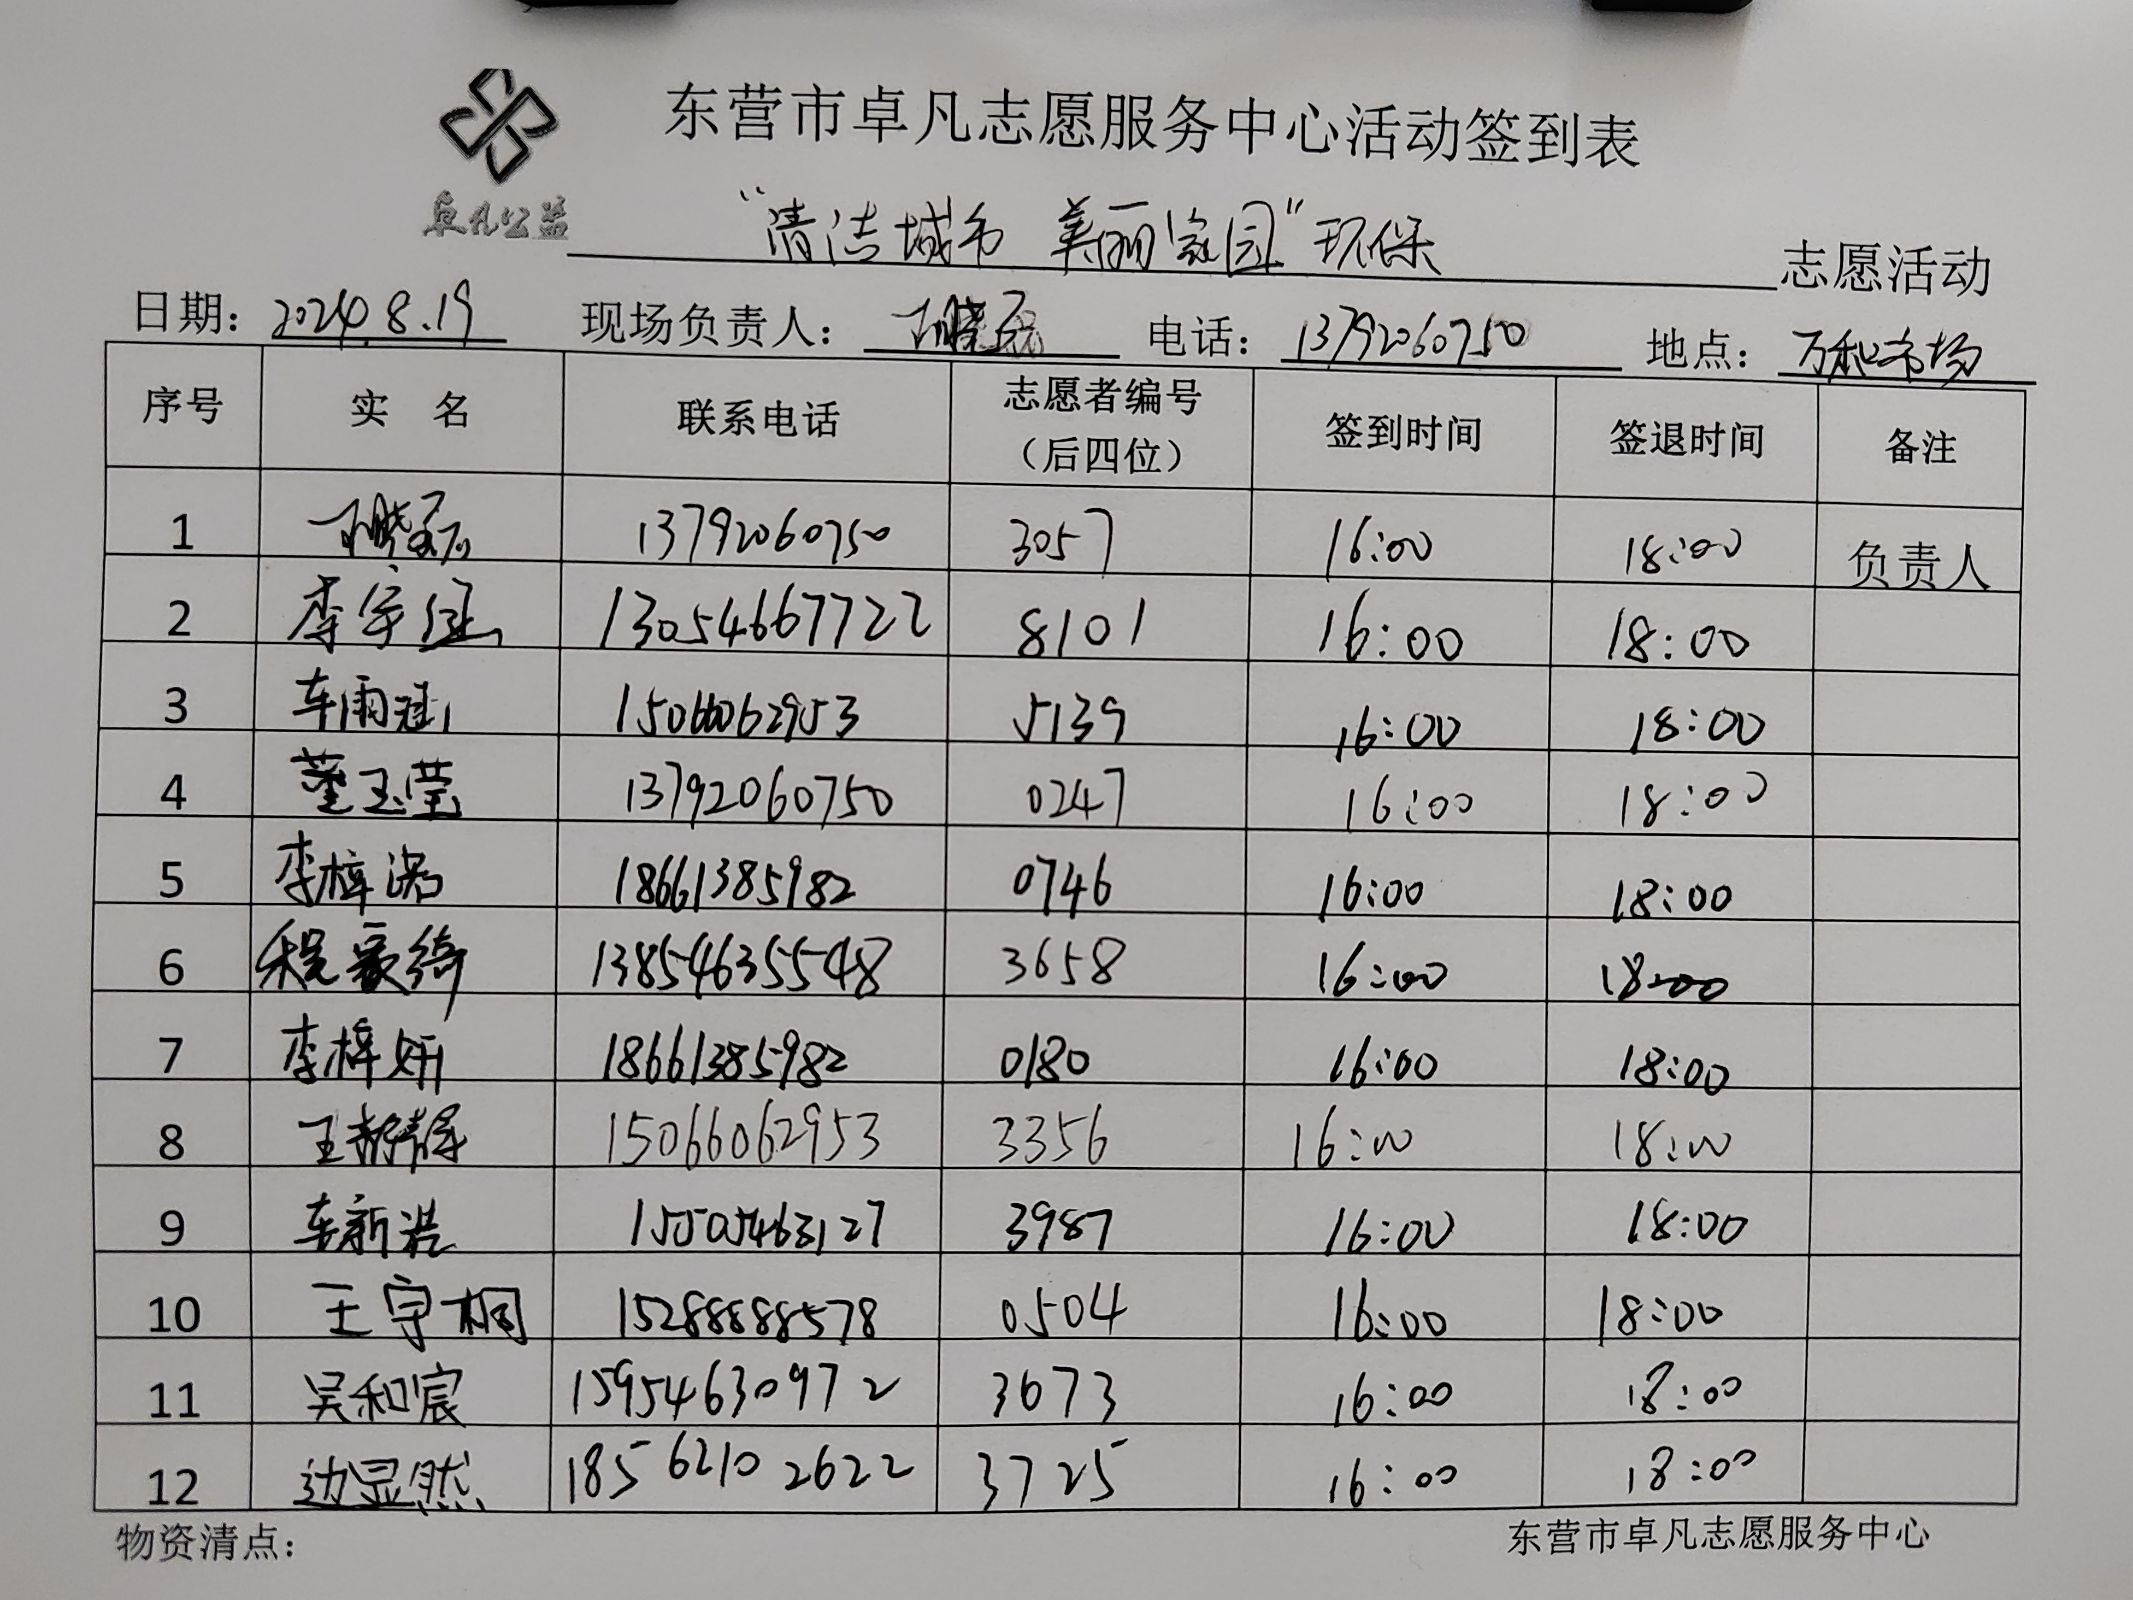 东营市卓凡志愿服务中心活动签到表
卓凡公益
“清洁城市 美丽家园”环保 志愿活动
日期: 2024.8.19 现场负责人: 电话: 13792060750 地点: 万和市场
序号 实 名 联系电话 志愿者编号（后四位） 签到时间 签退时间 备注
1 13792060750 3057 16:00 18:00 负责人
2 李宇涵 13054667722 8101 16:00 18:00
3 车雨涵 15066062953 5139 16:00 18:00
4 董玉莹 13792060750 0247 16:00 18:00
5 李梓涵 18661385982 0746 16:00 18:00
6 程家绮 13854635548 3658 16:00 18:00
7 李梓妍 18661385982 0180 16:00 18:00
8 15066062953 3356 16:00 18:00
9 车新浩 15505463127 3987 16:00 18:00
10 王宇桐 15288888578 0504 16:00 18:00
11 吴和宸 15954630972 3673 16:00 18:00
12 边显然 18562102622 3725 16:00 18:00
物资清点: 东营市卓凡志愿服务中心